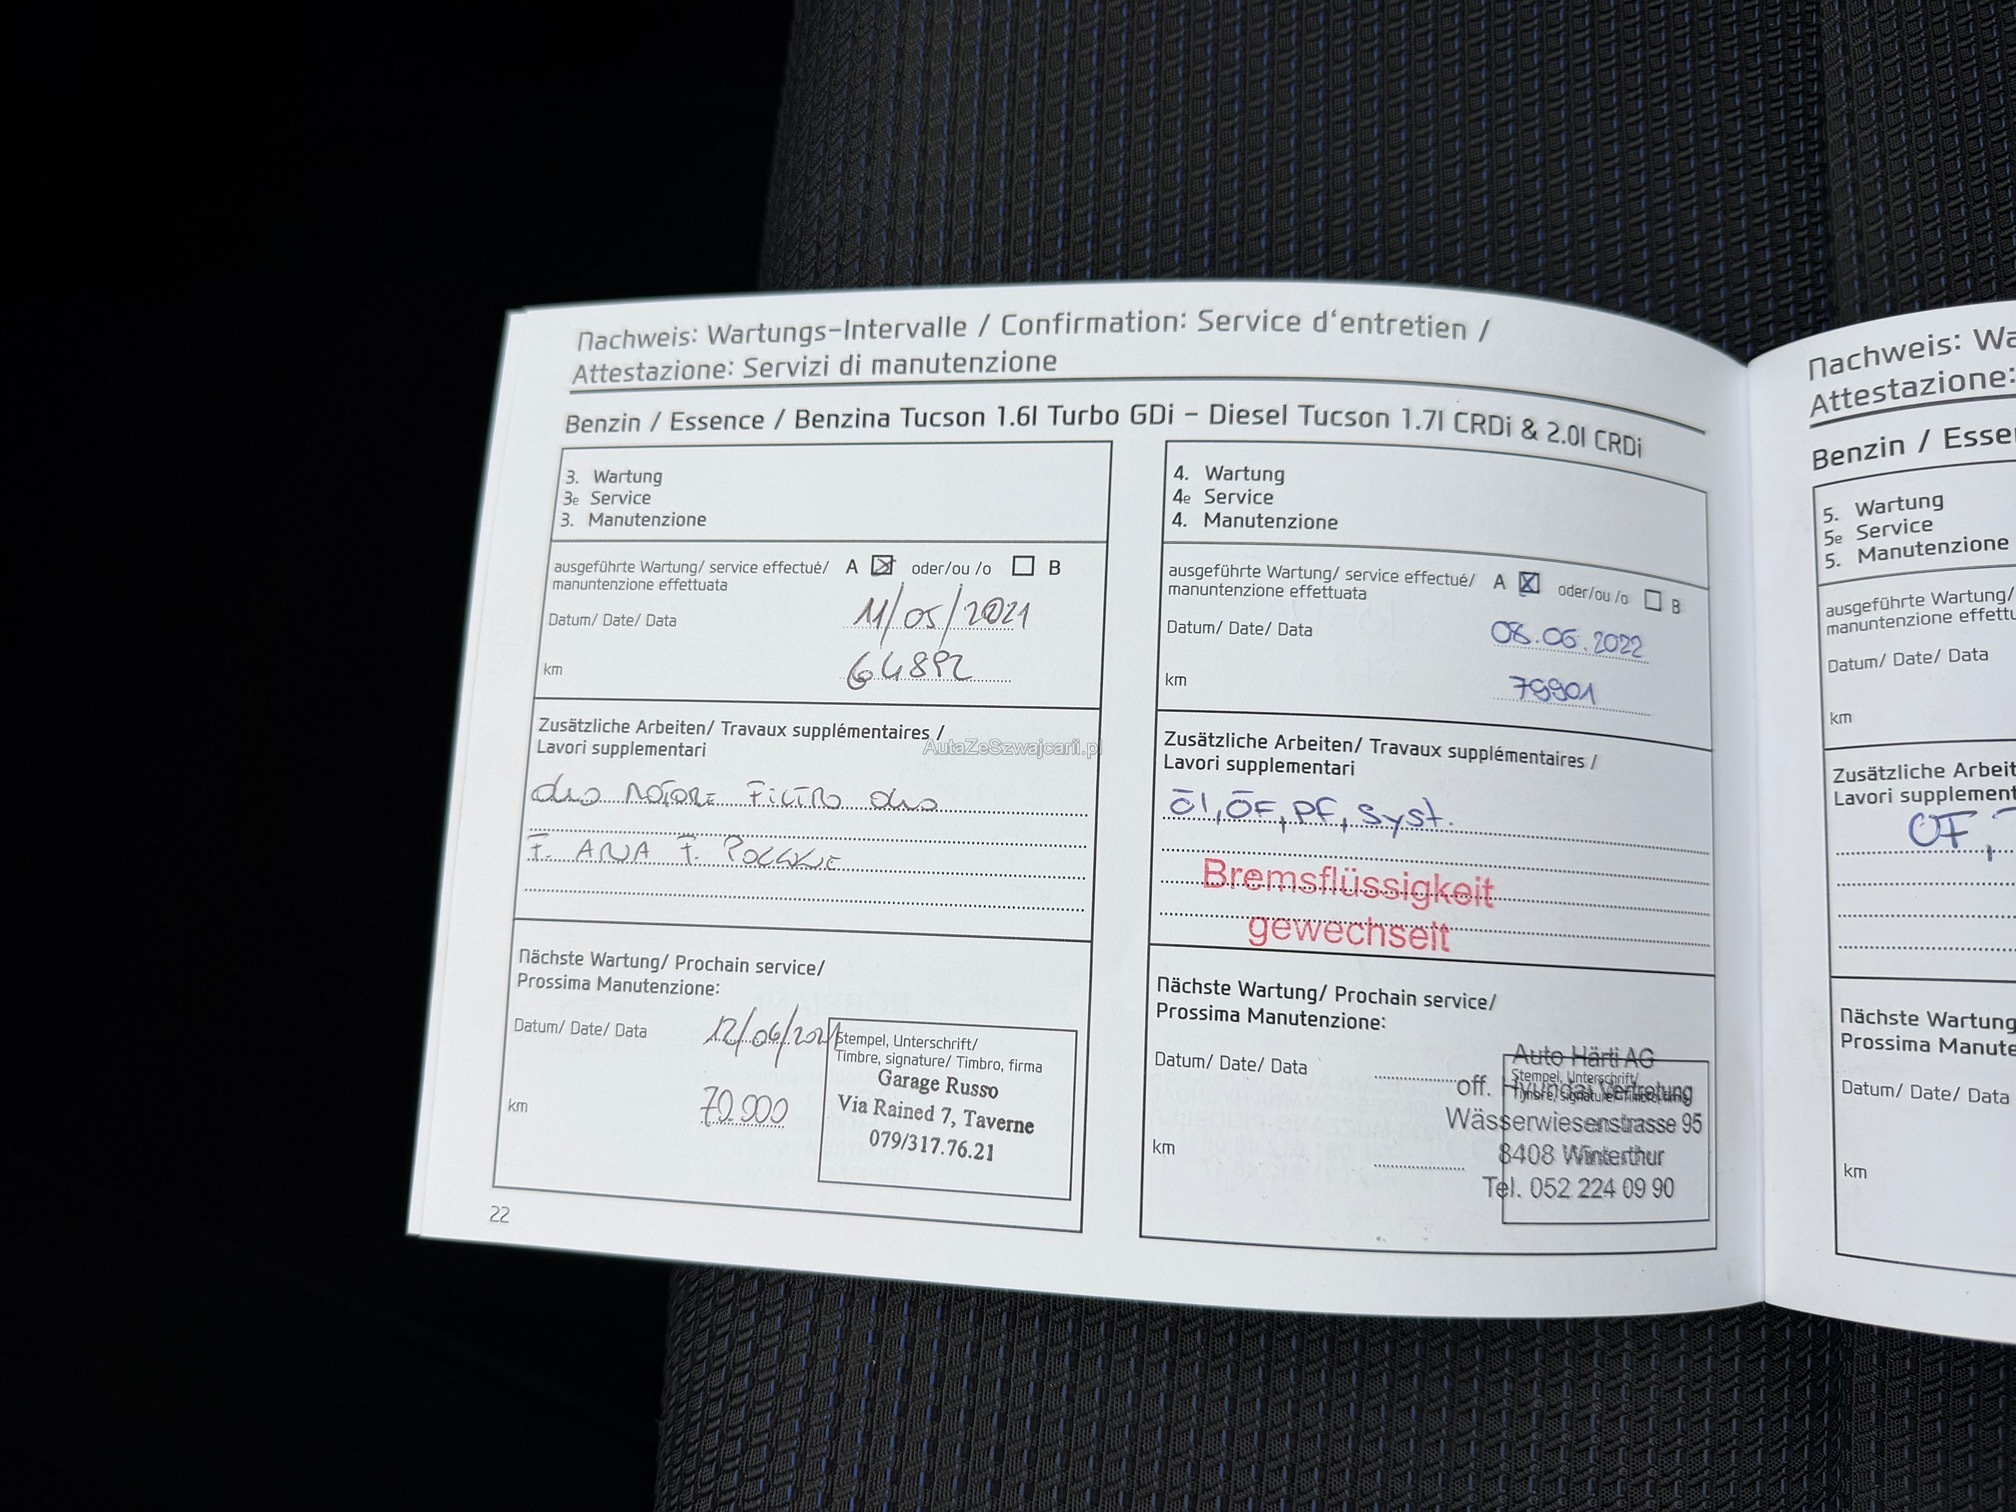 Nachweis: Wartungs-Intervalle / Confirmation: Service d'entretien /
Attestazione: Servizi di manutenzione
Benzin / Essence / Benzina Tucson 1.6l Turbo GDi – Diesel Tucson 1.7l CRDi & 2.0l CRDi
3. Wartung
3e Service
3. Manutenzione
ausgeführte Wartung/ service effectué/ A oder/ou /o B
manuntenzione effettuata
Datum/ Date/ Data 11/05/2021
km 64892
Zusätzliche Arbeiten/ Travaux supplémentaires /
Lavori supplementari
AutaZeSzwajcarii.pl
olio MOTORE FILTRO olio
F. ARIA F. POLLINE
Nächste Wartung/ Prochain service/
Prossima Manutenzione:
Datum/ Date/ Data 12/06/202
km 70.000
Stempel, Unterschrift/
Timbre, signature/ Timbro, firma
Garage Russo
Via Rained 7, Taverne
079/317.76.21
22
4. Wartung
4e Service
4. Manutenzione
ausgeführte Wartung/ service effectué/ A oder/ou /o B
manuntenzione effettuata
Datum/ Date/ Data 08.06.2022
km 79901
Zusätzliche Arbeiten/ Travaux supplémentaires /
Lavori supplementari
Öl, ÖF, PF, Syst.
Bremsflüssigkeit
gewechselt
Nächste Wartung/ Prochain service/
Prossima Manutenzione:
Datum/ Date/ Data
km
Auto Härti AG
Stempel, Unterschrift/
off. Hyundai Vertretung
Timbre, signature/ Timbro, firma
Wässerwiesenstrasse 95
8408 Winterthur
Tel. 052 224 09 90
Nachweis: Wa
Attestazione:
Benzin / Esse
5. Wartung
5e Service
5. Manutenzione
ausgeführte Wartung/
manuntenzione effettu
Datum/ Date/ Data
km
Zusätzliche Arbeit
Lavori supplement
ÖF,
Nächste Wartung
Prossima Manute
Datum/ Date/ Data
km